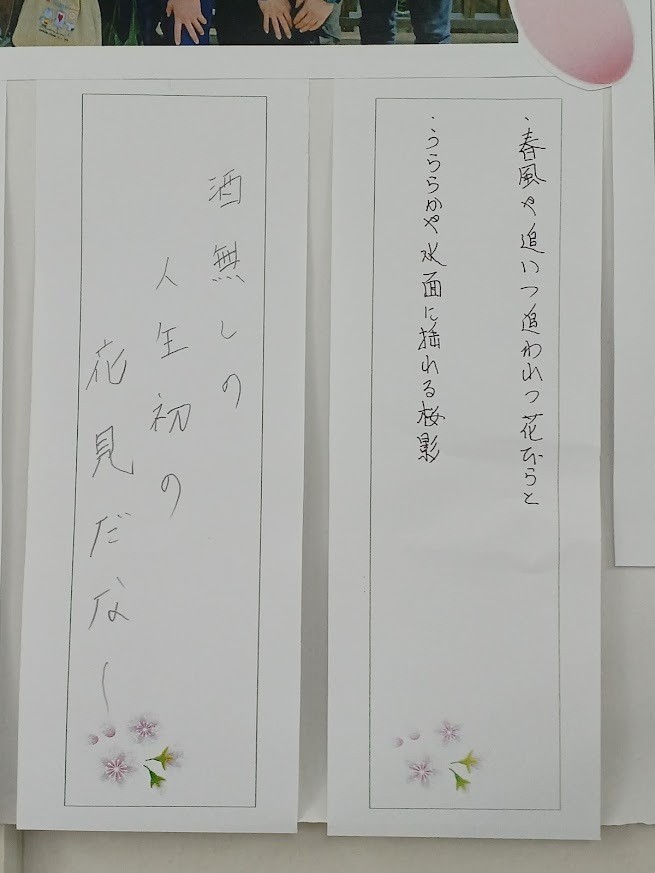 ・春風や追いつ追われつ花びらと
・うららかや水面に揺れる桜影
酒無しの
人生初の
花見だなー